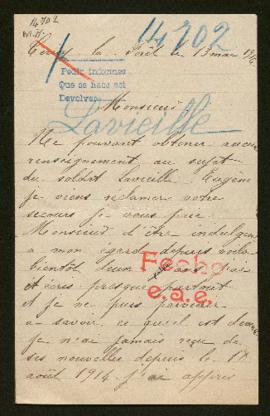 14702
14702
la Forêt le 13 mai 19
Pedir informes
Que se hace así
Devolver
Monsieur
Lavieille
Ne pouvant obtenir aucun
renseignement au sujet
du soldat Lavieille Eugène
je viens réclamer votre
secours je vous prie
Monsieur d'être indulgent
a mon égard depuis voila
bientôt deux ans j'ai
écris presque partout
et je ne puis parvenir
a savoir ce qu'il est devenu
je n'ai jamais reçu de
ses nouvelles depuis le 18
août 1914 j'ai appris
Fecho
e.a.e.